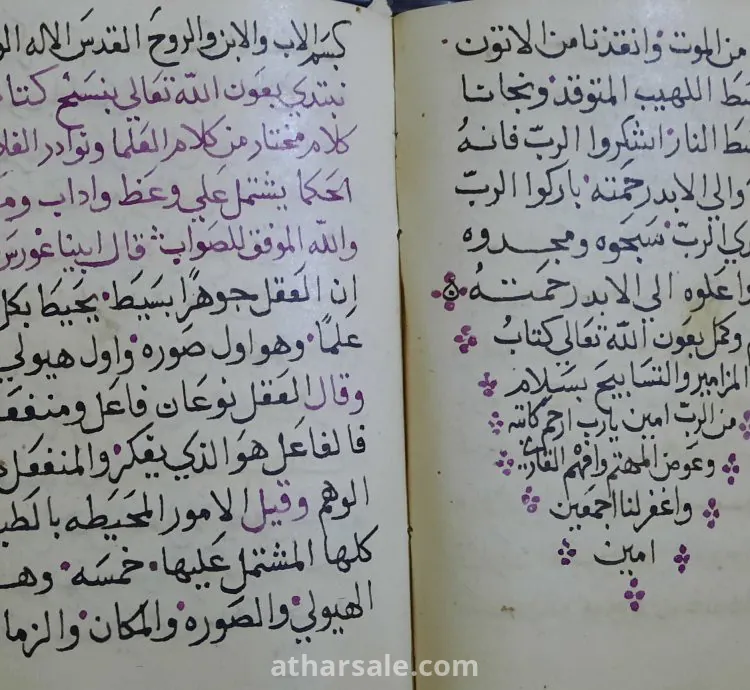 من الموت وانقذنا من الاتون
اللهيب المتوقد ونجانا
النار اشكروا الربّ فانهُ
والي الابد رحمته باركوا الربّ
الربّ سبّحوه ومجدوه
واعلوه الي الابد رحمتهُ
وكمل بعون اللّه تعالى كتابُ
المزامير والتسابيح بسلام
من الربّ امين يارب ارحم كاتبه
وعوض المهتم وافهم القاري
واغفر لنا اجمعين
امين
بسم الاب والابن والروح القدس الاله
نبتدي بعون اللّه تعالى بنسخ
كلام مختار من كلام العلما ونوادر
الحكما يشتمل علي وعظ واداب
واللّه الموفق للصواب قال
ان العقل جوهرًا بسيط يحيط بكل
علمًا وهو اول صوره واول هيولي
وقال العقل نوعان فاعل ومنفعل
فالفاعل هو الذي يفكر والمنفعل
الوهم وقيل الامور المحيطه
كلها المشتمل عليها خمسه
الهيولي والصوره والمكان
atharsale.com